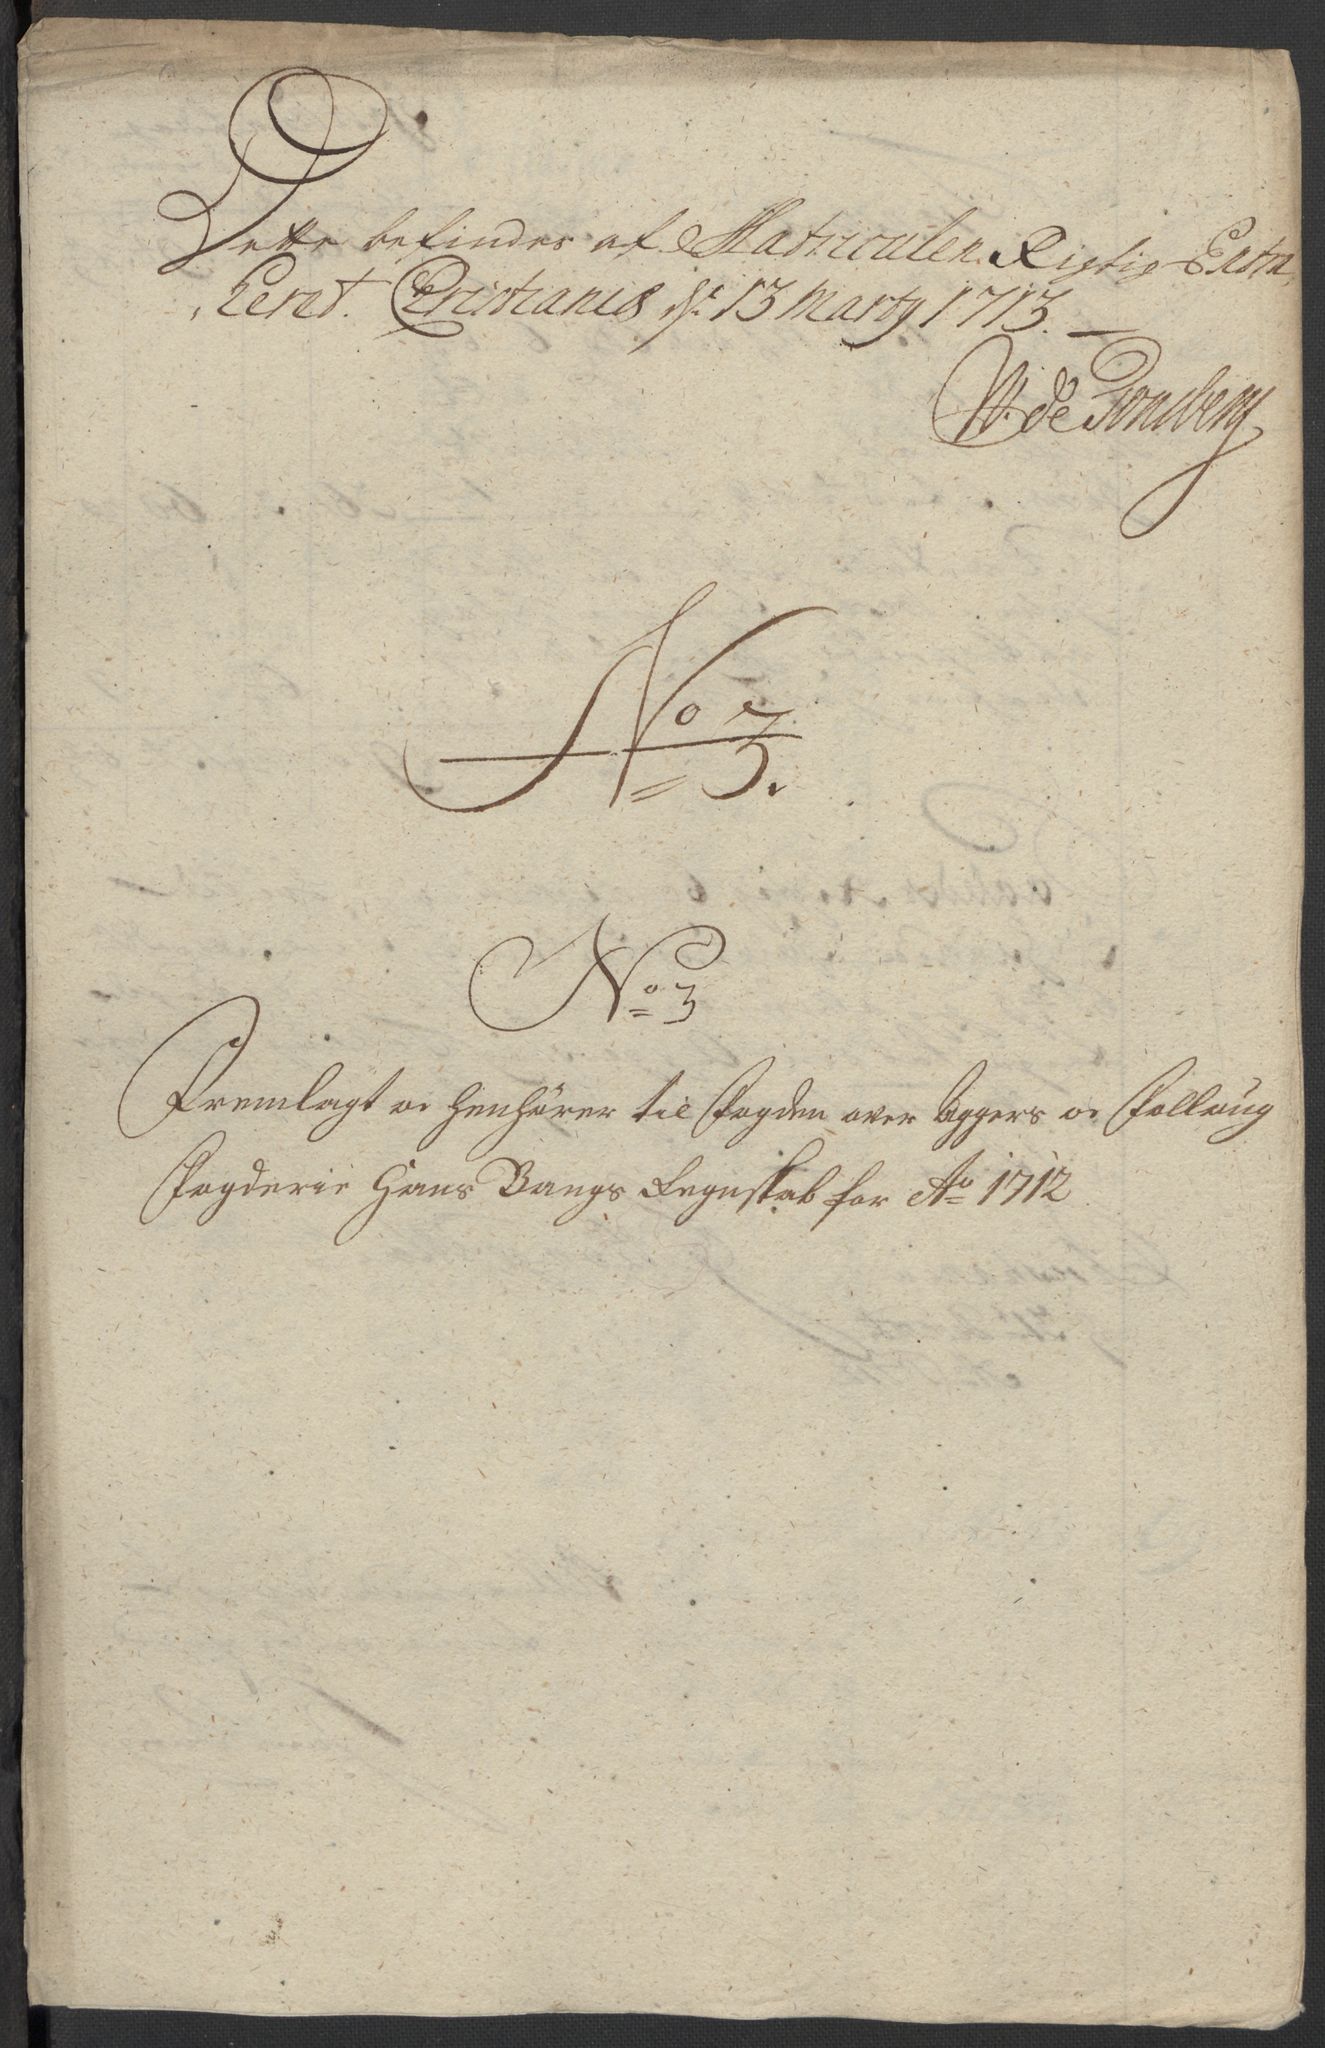 Dette befindes af Matriculen Rigtig Extra,
heret. Christiania d: 13 Marty 1713.
W. de Tonsberg
No 3.
No 3
Fremlagt oc henhører til Fogden over Aggers oc Follaug
Fogderie Hans Bangs Regnskab for Ao 1712